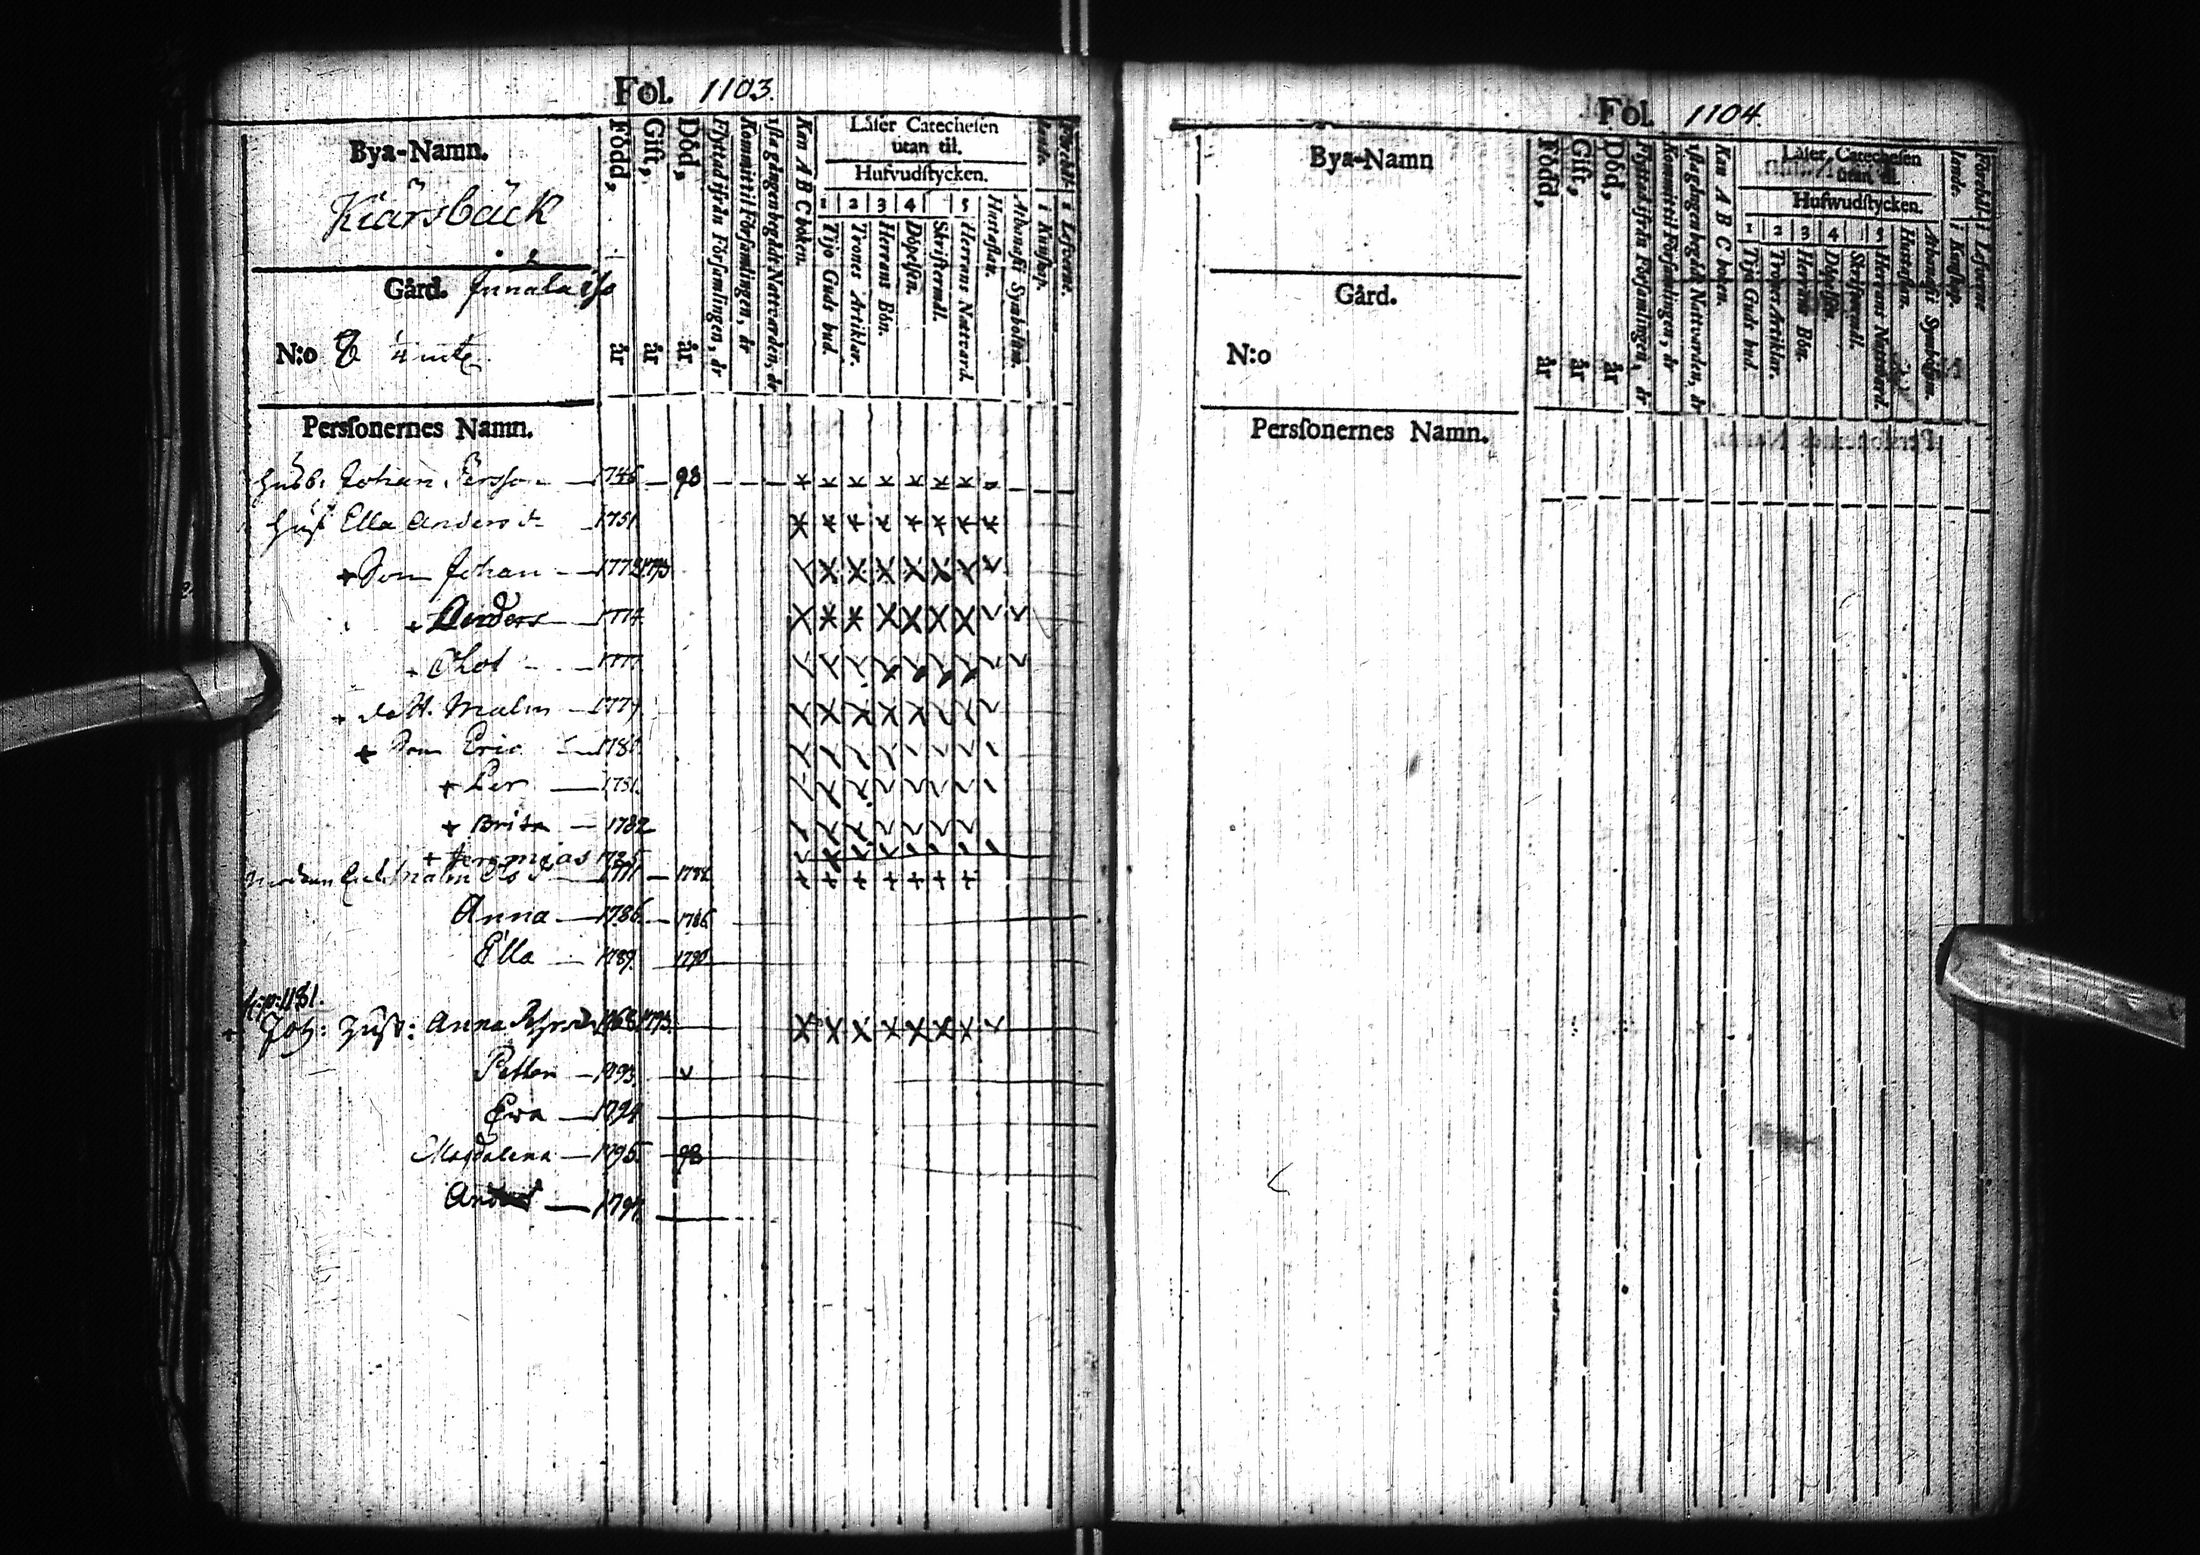 Fol. 1103.
Bya-Namn.
Kiärsbäck
Gård.
N:o
Född, år
Gift, år
Död, år
Flyttad ifrån Församlingen, år
Kommit til Församlingen, år
1sta gången begådt Nattvarden, år
Kan A B C boken.
Läser Catechesen
utan til.
Hufvudstycken.
1 2 3 4 5
Tijo Guds bud.
Trones Artiklar.
Herrans Bön.
Döpelsen.
Skriftermål.
Herrans Nattvard.
Hustaflan.
Athanasii Symbolum.
Personernes Namn.
Husb: Johan Persson 1746 98
Hust Ella Anders d. 1751
+ Son Johan 1773 1793
+ Anders 1774
+ Olof 1777
+ dott. Malin 1779
+ Son Eric
+ Per 1781
+ Brita 1782
+ Jeremias 1785
Malin
Anna 1786 1786
Ella 1789 1790
f:p: 1181.
+ Joh: Hust: Anna 1768 1793
Petter 1793
Ewa 1794
Magdalena 1795 98
1797
Fol. 1104.
Bya-Namn
Gård.
N:o
Född, år
Gift, år
Död, år
Flyttad ifrån Församlingen, år
Kommit til Församlingen, år
1sta gången begådt Nattvarden, år
Kan A B C boken.
Läser Catechesen
utan til.
Hufwudstycken.
1 2 3 4 5
Tijo Guds bud.
Trones Artiklar.
Herrans Bön.
Döpelsen.
Skriftermål.
Herrans Nattvard.
Hustaflan.
Athanasii Symbolum.
Personernes Namn.